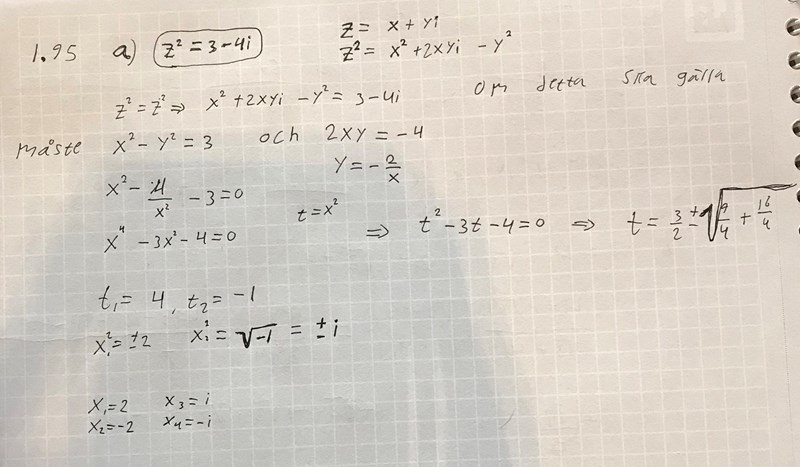 1.95 a) z² = 3-4i z = x + yi
z² = x² + 2xyi - y²
z² = z² ⇒ x² + 2xyi - y² = 3 - 4i Om detta ska gälla
måste x² - y² = 3 och 2xy = -4
y = -2/x
x² - 4/x² - 3 = 0
x⁴ - 3x² - 4 = 0 t = x² ⇒ t² - 3t - 4 = 0 ⇒ t = 3/2 ± √(9/4 + 16/4)
t₁ = 4, t₂ = -1
x₁² = ±2 x₂² = √-1 = ±i
x₁ = 2 x₃ = i
x₂ = -2 x₄ = -i